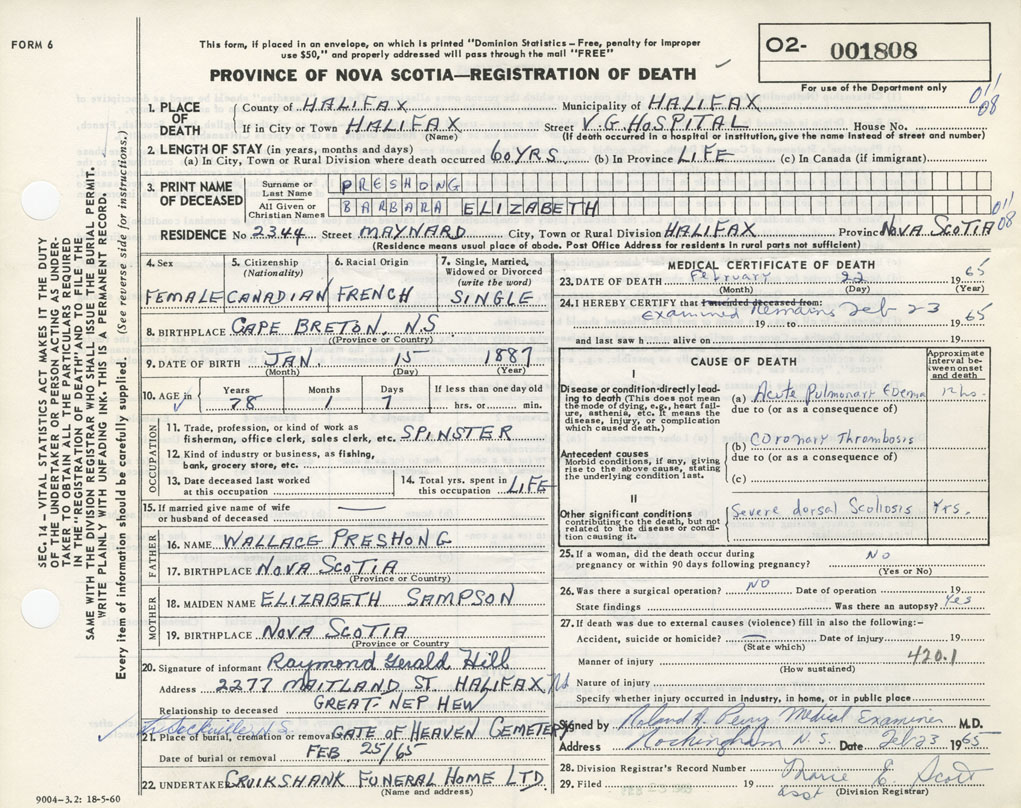 FORM 6
This form, if placed in an envelope, on which is printed "Dominion Statistics – Free, penalty for improper
use $50," and properly addressed will pass through the mail "FREE"
PROVINCE OF NOVA SCOTIA—REGISTRATION OF DEATH
O2- 001808
For use of the Department only
011
08
1. PLACE OF DEATH
County of HALIFAX Municipality of HALIFAX
If in City or Town HALIFAX Street V.G. HOSPITAL House No.
(Name) (If death occurred in a hospital or institution, give the name instead of street and number)
2. LENGTH OF STAY (in years, months and days)
(a) In City, Town or Rural Division where death occurred 60 YRS (b) In Province LIFE (c) In Canada (if immigrant)
3. PRINT NAME OF DECEASED
Surname or Last Name PRESHONG
All Given or Christian Names BARBARA ELIZABETH
011
08
RESIDENCE No 2344 Street MAYNARD City, Town or Rural Division HALIFAX Province NOVA SCOTIA
(Residence means usual place of abode. Post Office Address for residents in rural parts not sufficient)
4. Sex
FEMALE
5. Citizenship (Nationality)
CANADIAN
6. Racial Origin
FRENCH
7. Single, Married, Widowed or Divorced (write the word)
SINGLE
8. BIRTHPLACE CAPE BRETON, N.S.
((Province or Country)
9. DATE OF BIRTH JAN. 15 1887
(Month) (Day) (Year)
10. AGE in
Years Months Days If less than one day old
78 1 7 hrs. or min.
OCCUPATION
11. Trade, profession, or kind of work as
fisherman, office clerk, sales clerk, etc. SPINSTER
12. Kind of industry or business, as fishing,
bank, grocery store, etc.
13. Date deceased last worked
at this occupation
14. Total yrs. spent in
this occupation LIFE
15. If married give name of wife
or husband of deceased —
FATHER
16. NAME WALLACE PRESHONG
17. BIRTHPLACE NOVA SCOTIA
(Province or Country)
MOTHER
18. MAIDEN NAME ELIZABETH SAMPSON
19. BIRTHPLACE NOVA SCOTIA
(Province or Country
20. Signature of informant Raymond Gerald Hill
Address 2277 MAITLAND ST. HALIFAX, NS
Relationship to deceased GREAT-NEPHEW
Sackville N.S.
21. Place of burial, cremation or removal GATE OF HEAVEN CEMETERY
Date of burial or removal FEB. 25/65
22. UNDERTAKER CRUIKSHANK FUNERAL HOME LTD.
(Name and address)
9004-3.2: 18-5-60
MEDICAL CERTIFICATE OF DEATH
23. DATE OF DEATH February 22 1965
(Month) (Day) (Year)
24. I HEREBY CERTIFY that I attended deceased from:
Examined Remains Feb 23 65
19 to 19
and last saw h alive on 19
CAUSE OF DEATH
Approximate interval between onset and death
I
Disease or condition directly leading to death (This does not mean the mode of dying, e.g., heart failure, asthenia, etc. It means the disease, injury, or complication which caused death.)
(a) Acute Pulmonary Edema 12 hs.
due to (or as a consequence of)
Antecedent causes
Morbid conditions, if any, giving rise to the above cause, stating the underlying condition last.
(b) Coronary Thrombosis
due to (or as a consequence of)
(c)
II
Other significant conditions
contributing to the death, but not related to the disease or condition causing it.
Severe dorsal Scoliosis Yrs.
25. If a woman, did the death occur during
pregnancy or within 90 days following pregnancy? NO
(Yes or No)
26. Was there a surgical operation? NO Date of operation 19
State findings Was there an autopsy? Yes
27. If death was due to external causes (violence) fill in also the following:–
Accident, suicide or homicide? — Date of injury 19
(State which)
Manner of injury 420.1
(How sustained)
Nature of injury
Specify whether injury occurred in industry, in home, or in public place
Signed by Roland A. Perry Medical Examiner M.D.
Address Rockingham N.S. Date Feb 23 1965
28. Division Registrar's Record Number
29. Filed 19 Marie E. Scott
asst (Division Registrar)
SEC. 14 – VITAL STATISTICS ACT MAKES IT THE DUTY
OF THE UNDERTAKER OR PERSON ACTING AS UNDER-
TAKER TO OBTAIN ALL THE PARTICULARS REQUIRED
IN THE "REGISTRATION OF DEATH" AND TO FILE THE
SAME WITH THE DIVISION REGISTRAR WHO SHALL ISSUE THE BURIAL PERMIT.
WRITE PLAINLY WITH UNFADING INK. THIS IS A PERMANENT RECORD.
Every item of information should be carefully supplied. (See reverse side for instructions.)